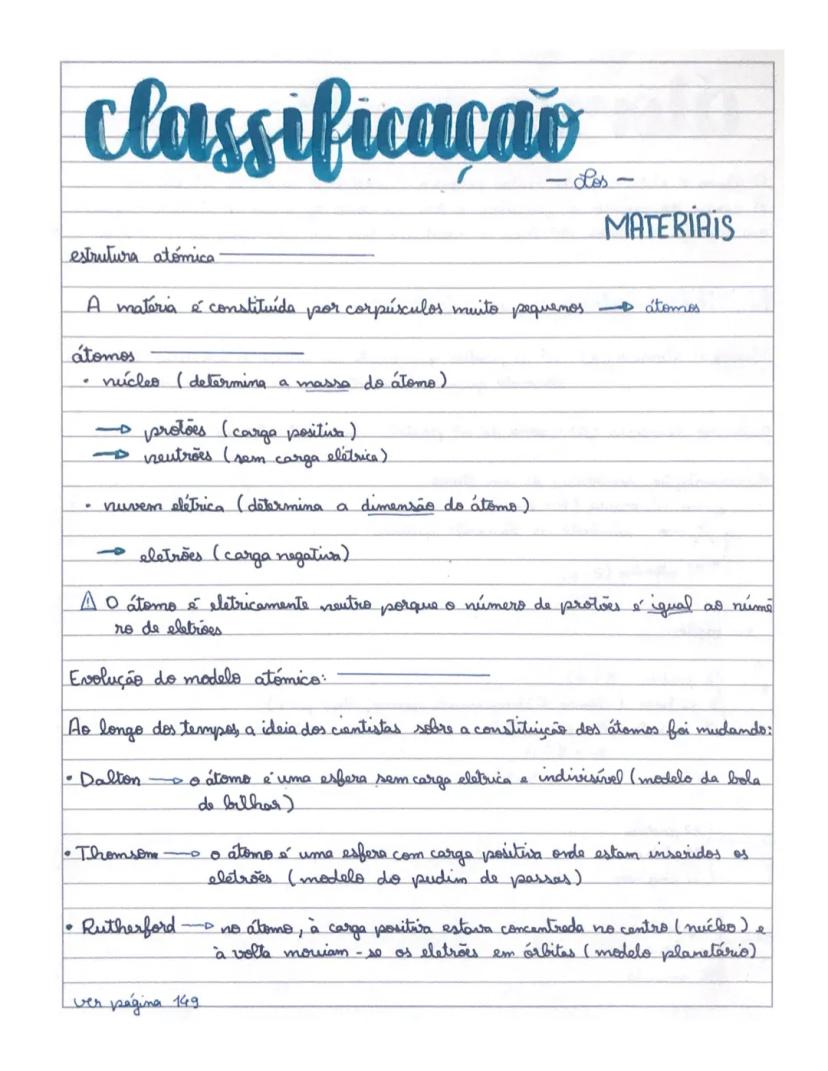 classificação
- dos -
MATERIAIS
estrutura atómica
A matéria é constituída por corpúsculos muito pequenos → átomos
átomos
• núcleo (determina a massa do átomo)
→ protões (carga positiva)
→ neutrões (sem carga elétrica)
• nuvem elétrica (determina a dimensão do átomo)
→ eletrões (carga negativa)
⚠ O átomo é eletricamente neutro porque o número de protões é igual ao núme
ro de eletrões
Evolução do modelo atómico:
Ao longo dos tempos, a ideia dos cientistas sobre a constituição dos átomos foi mudando:
• Dalton → o átomo é uma esfera sem carga eletrica e indivisível (modelo da bola
de bilhar)
• Thomsom → o átomo é uma esfera com carga positiva onde estam inseridos os
eletrões (modelo do pudim de passas)
• Rutherford → no átomo, à carga positiva estava concentrada no centro (núcleo) e
à volta moviam-se os eletrões em órbitas (modelo planetário)
ver página 149